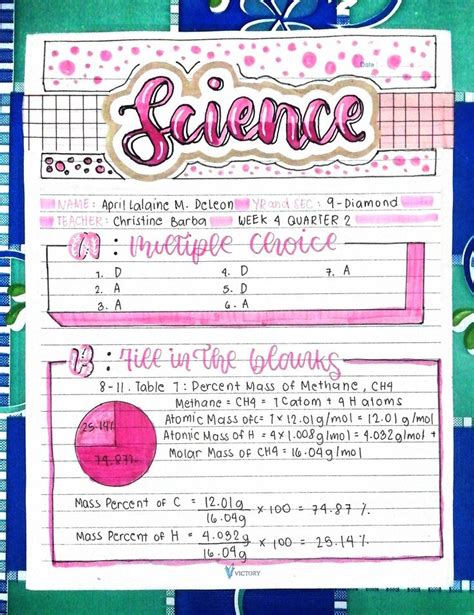 Date
Science
NAME: April Lalaine M. DeLeon YR and SEC: 9-Diamond
TEACHER: Christine Barba WEEK 4 QUARTER 2
A: Multiple Choice
1. D 4. D 7. A
2. A 5. D
3. A 6. A
B: Fill in The blanks
8-11. Table 7: Percent Mass of Methane, CH4
Methane = CH4 = 1 C atom + 4 H atoms
Atomic Mass of C = 1 x 12.01 g/mol = 12.01 g/mol
Atomic Mass of H = 4 x 1.008 g/mol = 4.032 g/mol +
Molar Mass of CH4 = 16.04 g/mol
25.14%
74.87%
Mass Percent of C = 12.01 g / 16.04 g x 100 = 74.87 %
Mass Percent of H = 4.032 g / 16.04 g x 100 = 25.14 %
VICTORY